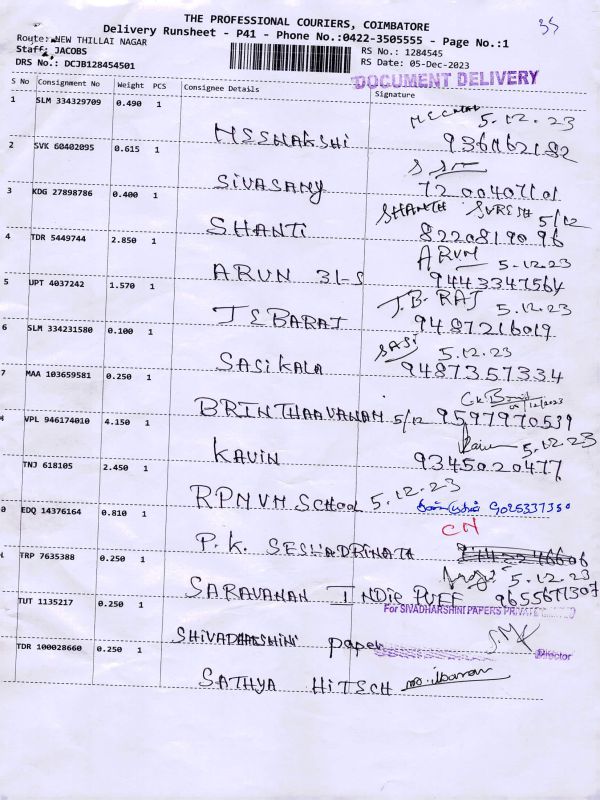 35
THE PROFESSIONAL COURIERS, COIMBATORE
Delivery Runsheet - P41 - Phone No.:0422-3505555 - Page No.:1
Route: NEW THILLAI NAGAR
RS No.: 1284545
Staff: JACOBS
RS Date: 05-Dec-2023
DRS No.: DCJB128454501
DOCUMENT DELIVERY
S No Consignment No Weight PCS Consignee Details Signature
1 SLM 334329709 0.490 1
5.12.23
MSSNAKSHI
2 SVK 60402095 0.615 1
SIVASAMY
3 KDG 27898786 0.400 1
SHANTH SURESH 5/12
SHANTI 8220819096
4 TDR 5449744 2.850 1
ARUN 5.12.23
ARUN 31-S 9443347564
5 UPT 4037242 1.570 1
J.B. RAJ 5.12.23
JEBARAJ 9487216019
6 SLM 334231580 0.100 1
SASI 5.12.23
SASIKALA 9487357334
7 MAA 103659581 0.250 1
BRINTHAAVANAM 5/12 9597970539
VPL 946174010 4.150 1
5.12.23
KAVIN 9345020477
TNJ 618105 2.450 1
RPMVM School 5.12.23 9025337350
EDQ 14376164 0.810 1
CN
P.K. SESHADRINATH
TRP 7635388 0.250 1
5.12.23
SARAVANAN INDIE PUFF 9655671307
TUT 1135217 0.250 1
For SIVADHARSHINI PAPERS PRIVATE LIMITED
SHIVADHARSHINI paper
Director
TDR 100028660 0.250 1
SATHYA HITSCH